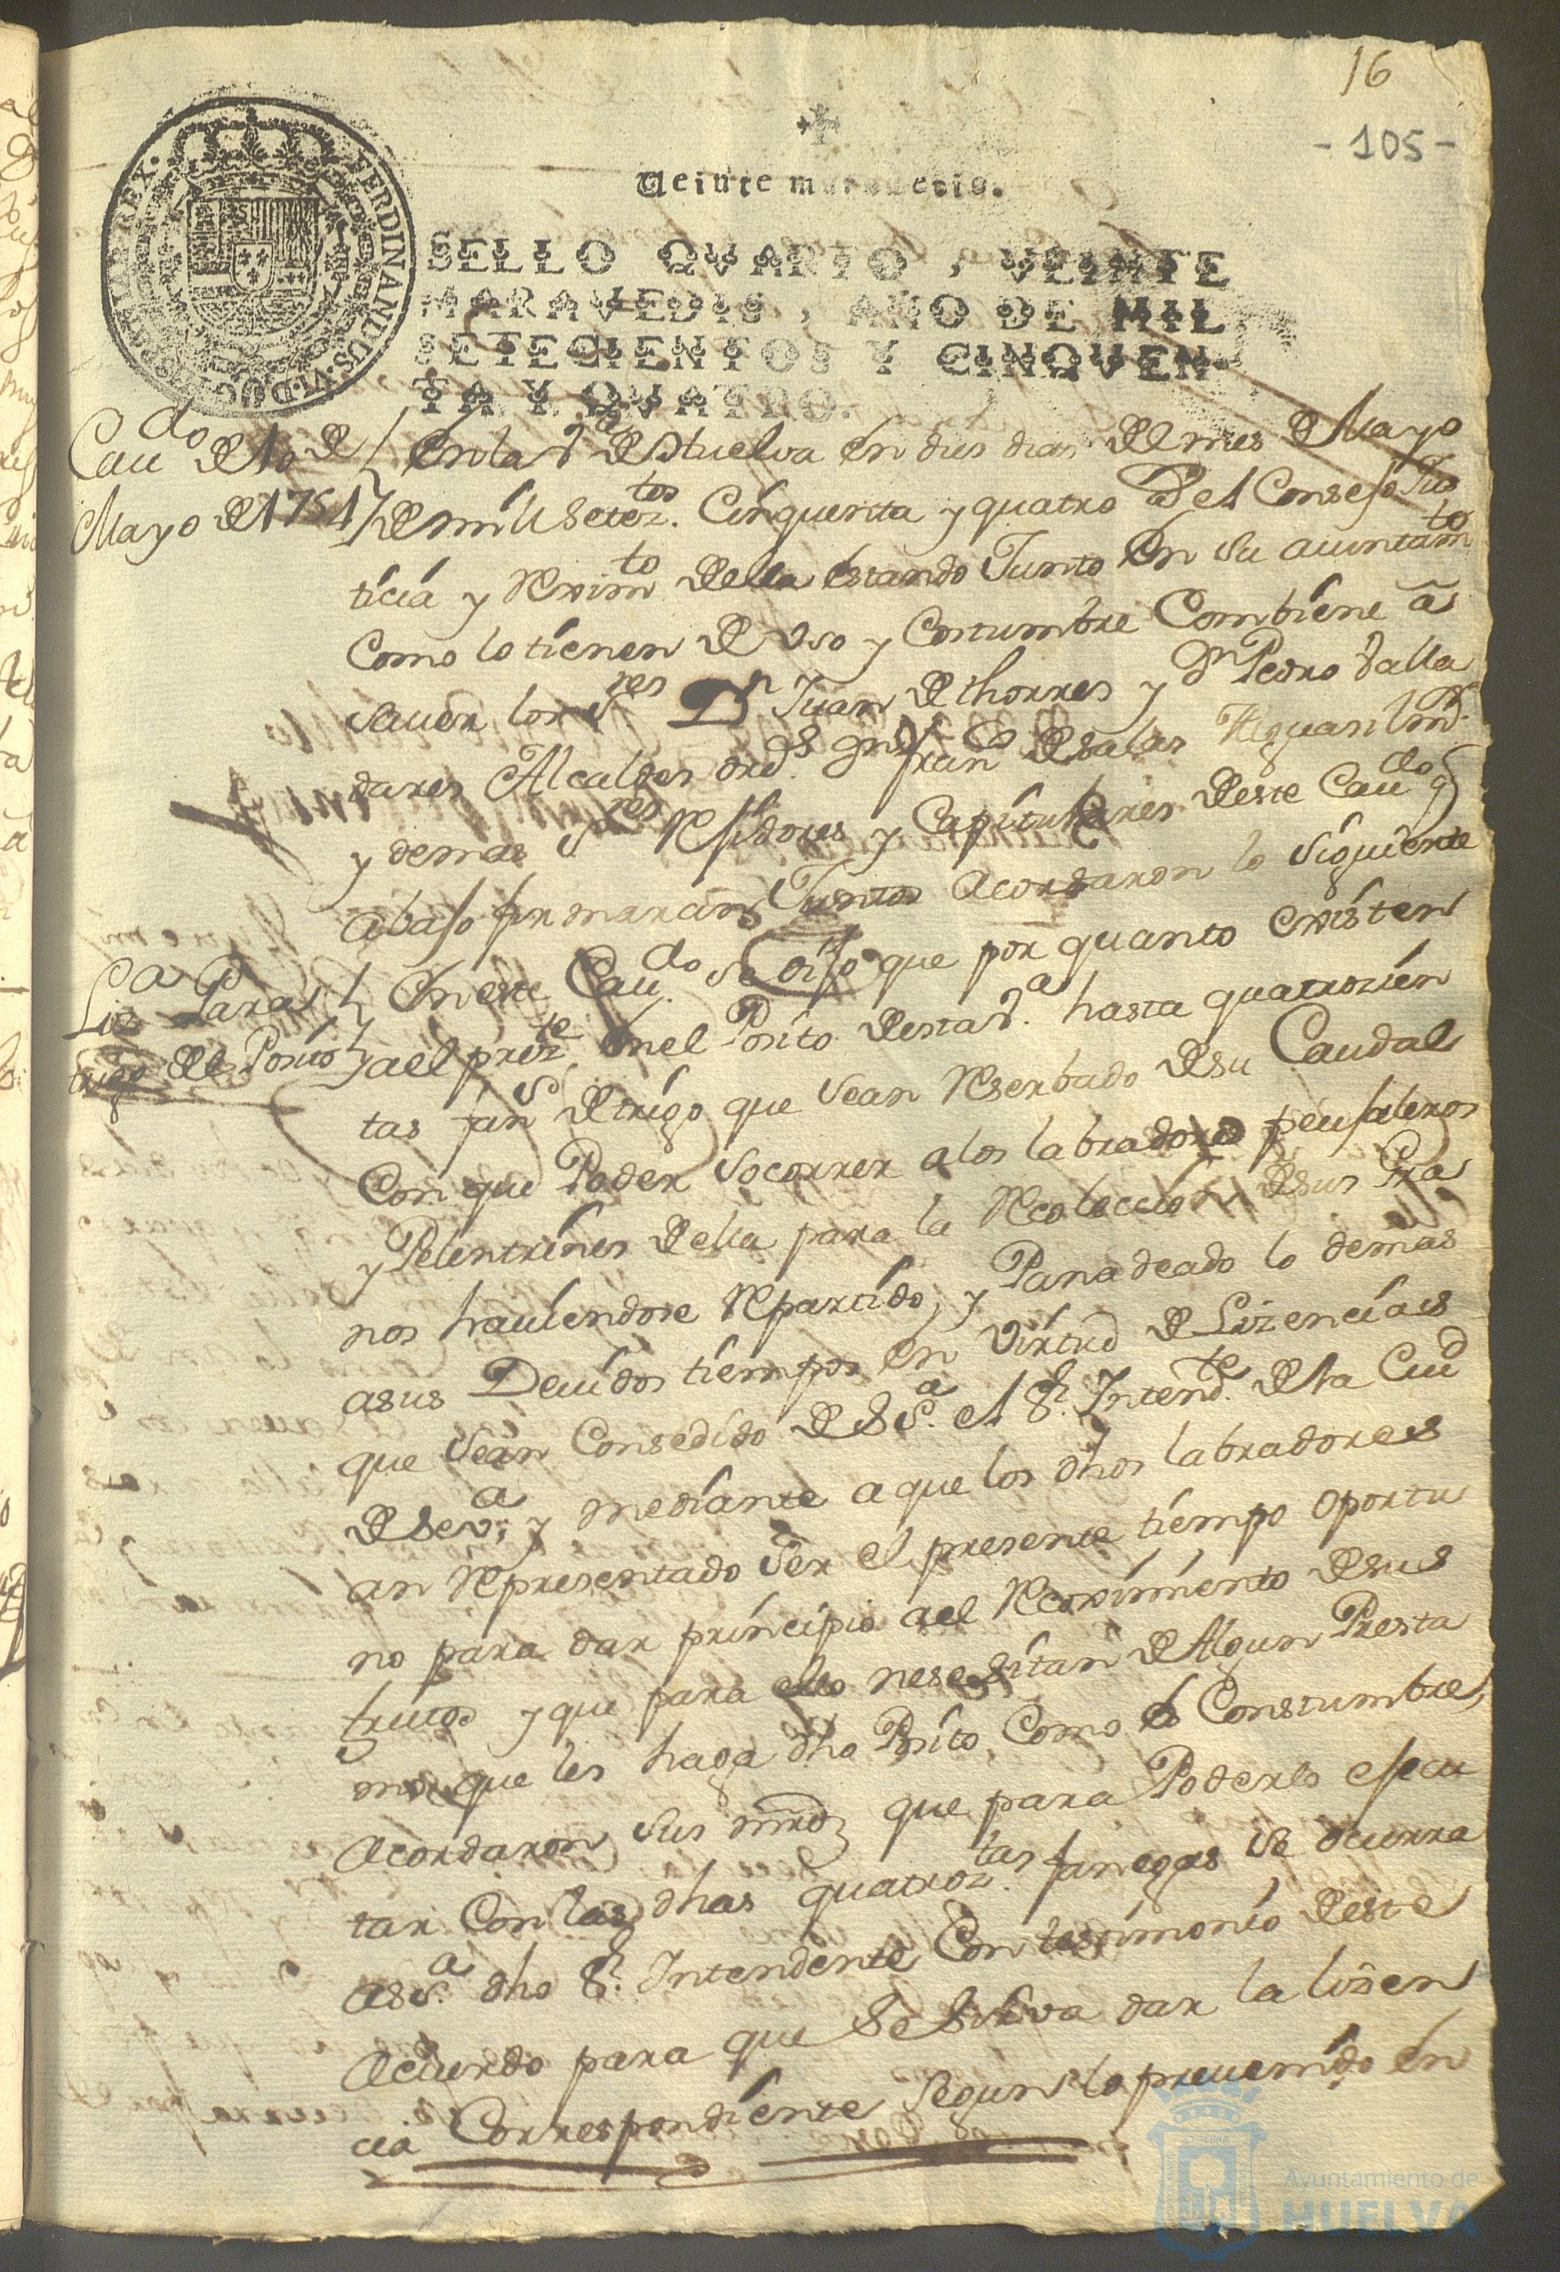 16
- 105 -
Veinte maravedis.
SELLO QVARTO, VEINTE
MARAVEDIS, AÑO DE MIL
SETECIENTOS Y CINQVEN-
TA Y QVATRO.
FERDINANDUS.VI.D.G. HISPANIAR.REX.
Cau.do de 10 de
Mayo de 1754
En la V.a de Huelva en dies dias del mes de Mayo
de mill Setez.tos Cinquenta y quatro el Consejo Jus
ticia y Reximto della estando Junto en su aiuntamto
Como lo tienen de Uso y Costumbre Combiene a
saver los Sres Dn Juan de thorres y Dn Pedro Valla
dares Alcaldes ords Dn Franco de Salas Alguasil mr
y demas Sres Rejidores y Capitulares deste Caudo q
abajo firmaran Juntos acordaron lo siguiente
Liza Para el
trigo del Posito
En este Cau.do se dijo que por quanto existen
a el preste en el Posito desta V.a hasta quatrozien
tas fans de trigo que sean Reserbado de su Caudal
Con que Poder Socorrer a los labradores peujaleros
y Pelentrines della para la Recoleccion de sus Gra
nos hauiendose Repartido, y Panadeado lo demas
a sus Deuidos tiempos en Virtud de Lizencias
que sean Consedido de Su S.a el Sr. Intendte de la Ciud
de Seva y mediante a que los dhos labradores
an Representado Ser el presente tiempo oportu
no para dar principio a el Recoximiento de sus
frutos y que para ello nesesitan de Algun Presta
mo que les haga dho Posito Como es Constumbre,
acordaron Sus mrds que para Poderlo ejecu
tar Con las dhas quatroztas fanegas se ocurra
a su S.a dho Sr. Intendente Con testimonio deste
acuerdo para que se sirva dar la lizen
cia Correspondiente segun lo preuenido en
Ayuntamiento de
HUELVA